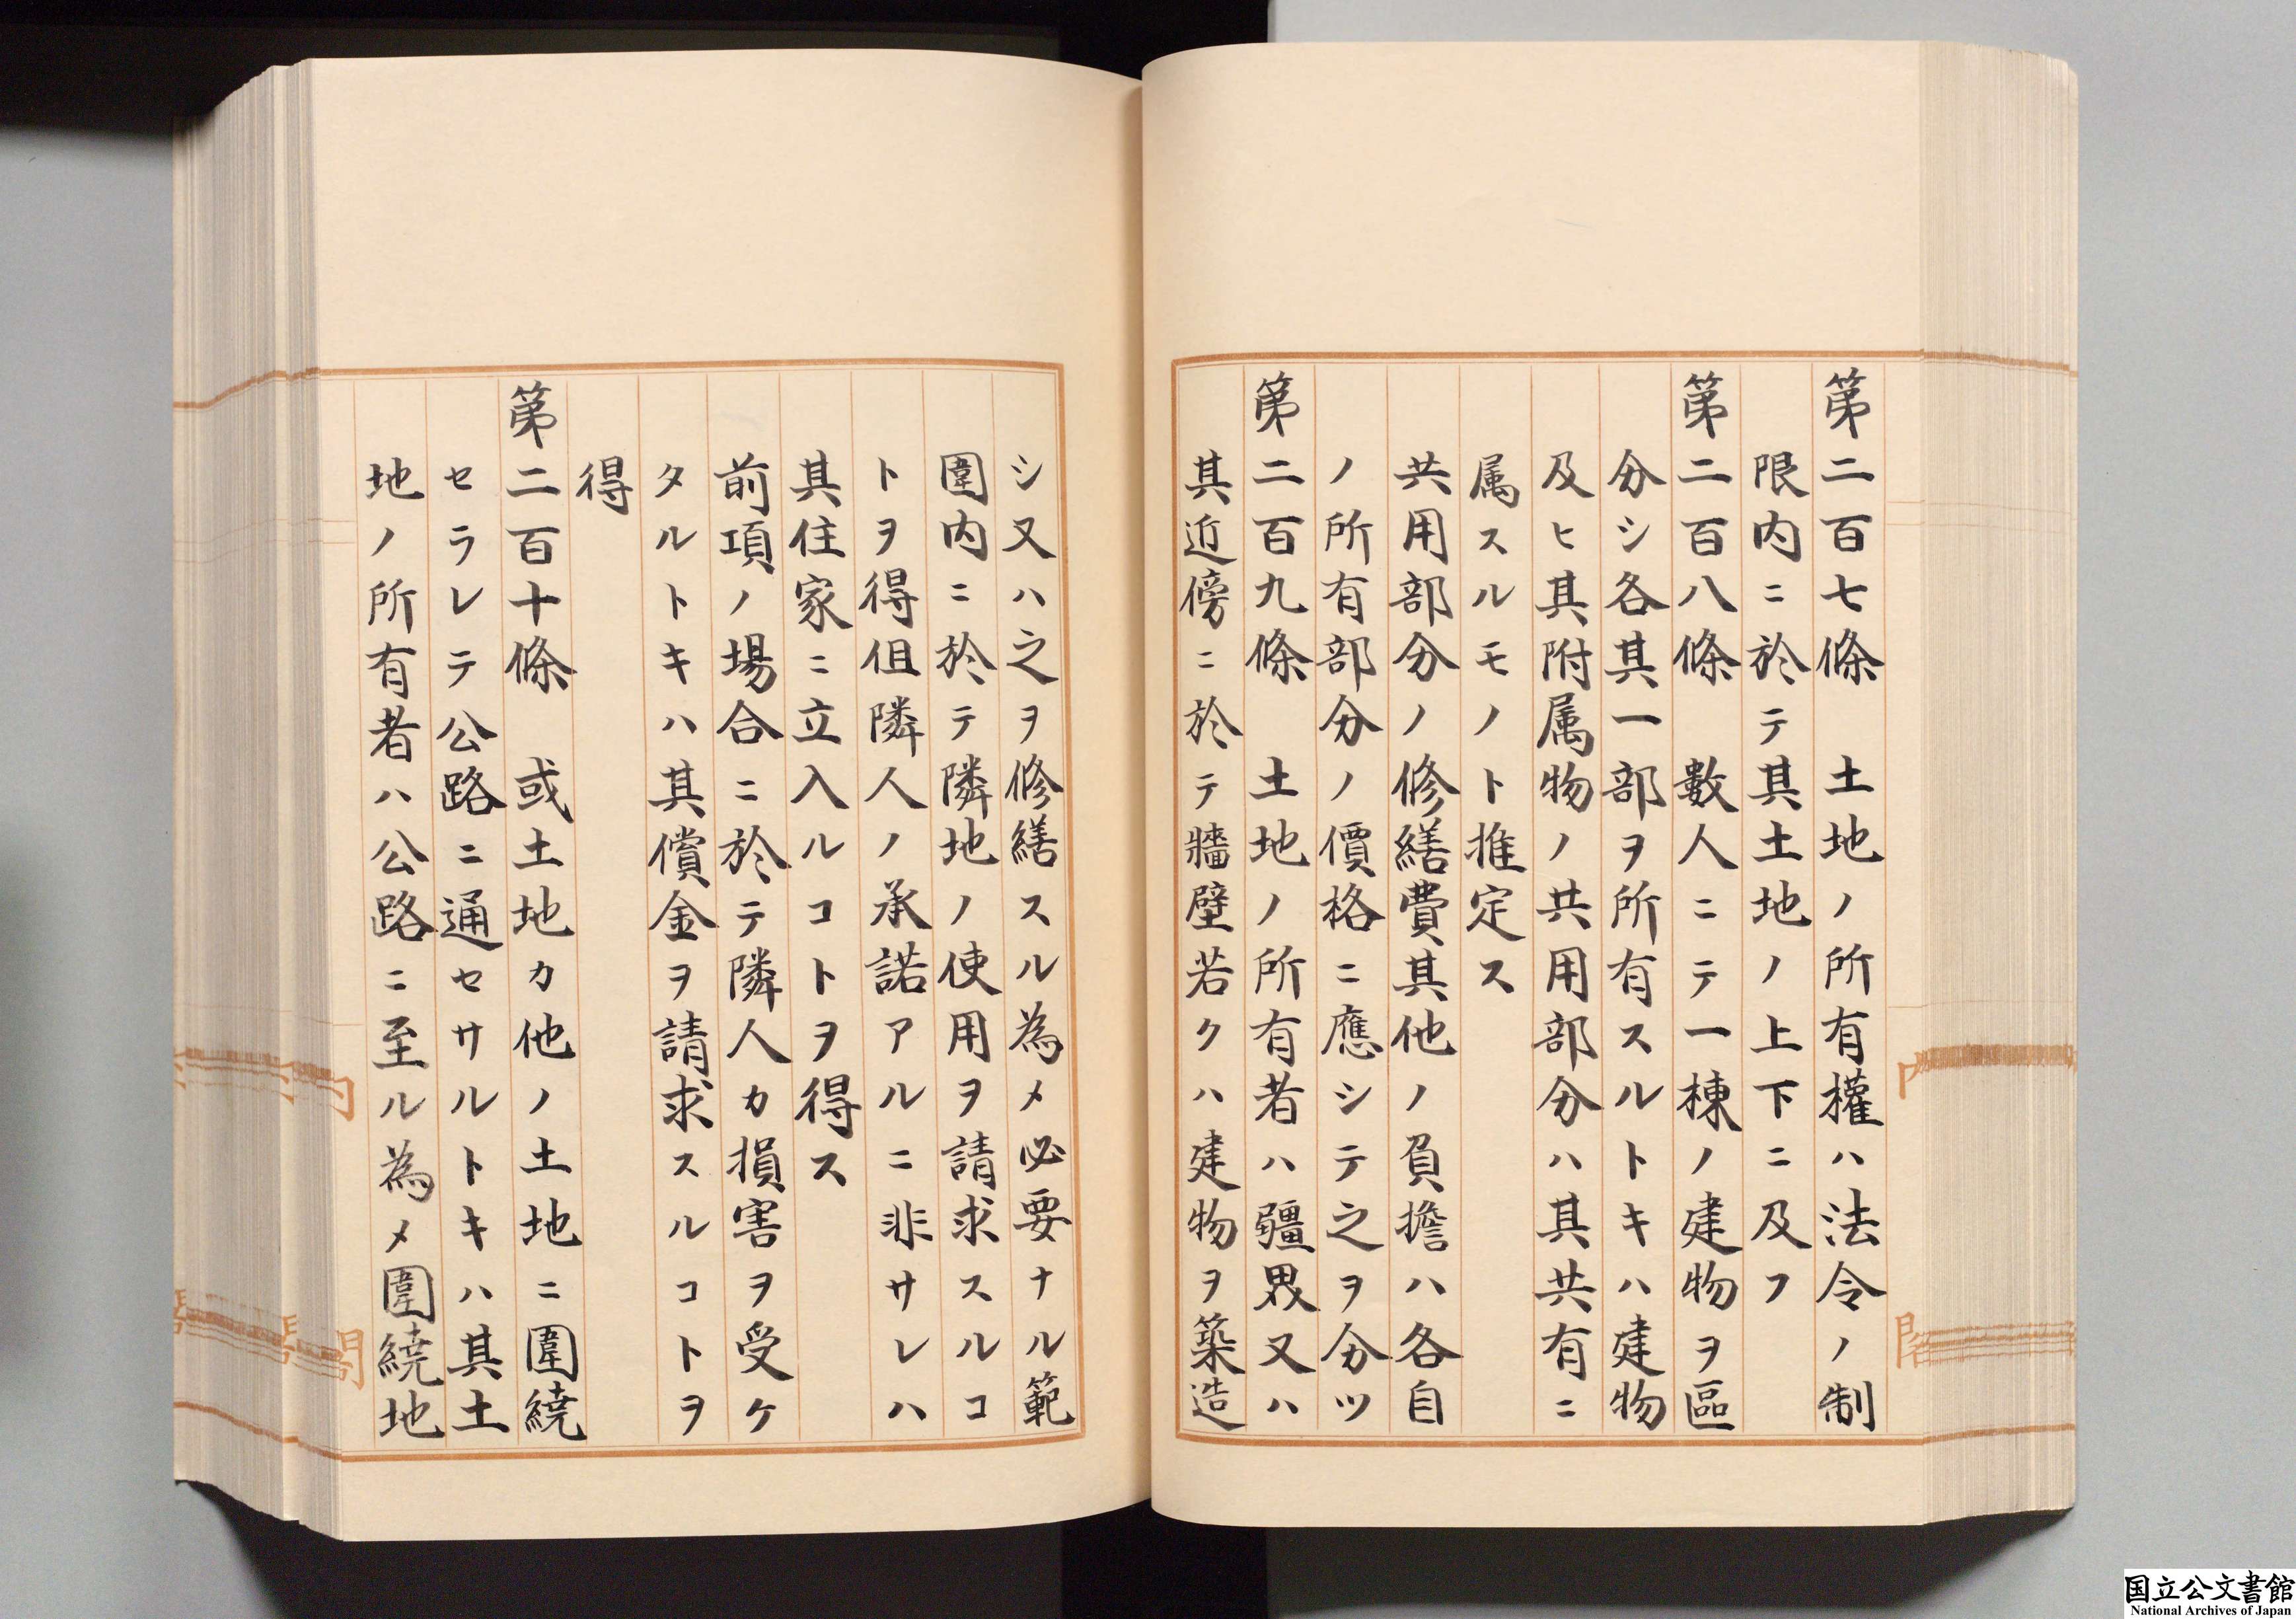 第二百七條　土地ノ所有權ハ法令ノ制
限内ニ於テ其土地ノ上下ニ及フ
第二百八條　數人ニテ一棟ノ建物ヲ區
分シ各其一部ヲ所有スルトキハ建物
及ヒ其附属物ノ共用部分ハ其共有ニ
属スルモノト推定ス
共用部分ノ修繕費其他ノ負擔ハ各自
ノ所有部分ノ價格ニ應シテ之ヲ分ツ
第二百九條　土地ノ所有者ハ疆界又ハ
其近傍ニ於テ牆壁若クハ建物ヲ築造
シ又ハ之ヲ修繕スル為メ必要ナル範
圍内ニ於テ隣地ノ使用ヲ請求スルコ
トヲ得但隣人ノ承諾アルニ非サレハ
其住家ニ立入ルコトヲ得ス
前項ノ場合ニ於テ隣人カ損害ヲ受ケ
タルトキハ其償金ヲ請求スルコトヲ
得
第二百十條　或土地カ他ノ土地ニ圍繞
セラレテ公路ニ通セサルトキハ其土
地ノ所有者ハ公路ニ至ル為メ圍繞地
国立公文書館
National Archives of Japan